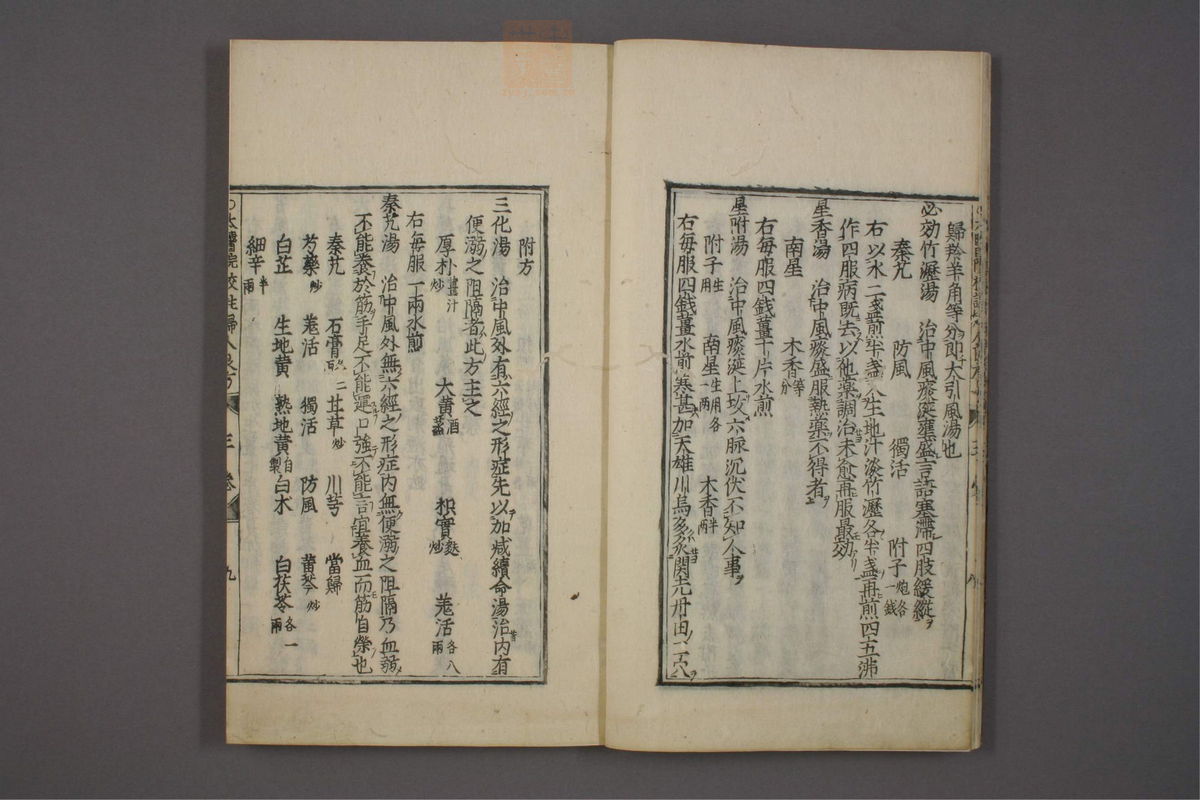 歸羚羊角等分即大引風湯也
必効竹瀝湯　治中風痰涎壅盛言語蹇澀四肢緩縱
秦艽　防風　獨活　附子炮各一錢
右以水二盞煎半盞入生地汁淡竹瀝各半盞再煎四五沸
作四服病既去以他藥調治未愈再服最効
星香湯　治中風痰盛服熱藥不得者
南星　木香等分
右每服四錢薑十片水煎
星附湯　治中風痰涎上攻六脉沉伏不知人事
附子生用　南星生用各一兩　木香半兩
右每服四錢薑水煎寒甚加天雄川烏多灸関元丹田二穴
附方
三化湯　治中風外有六經之形症先以加减續命湯治内有
便溺之阻隔者此方主之
厚朴薑汁炒　大黃酒蒸　枳實麩炒　羗活各八兩
右每服一兩水煎
秦艽湯　治中風外無六經之形症内無便溺之阻隔乃血弱
不能養於筋手足不能運口強不能言宜養血而筋自榮也
秦艽　石膏煆各二兩　甘草炒　川芎　當歸
芍藥炒　羗活　獨活　防風　黄芩炒
白芷　生地黄　熟地黄自製　白朮　白茯苓各一兩
細辛半兩
○太醫院校註婦人良方　三卷　九